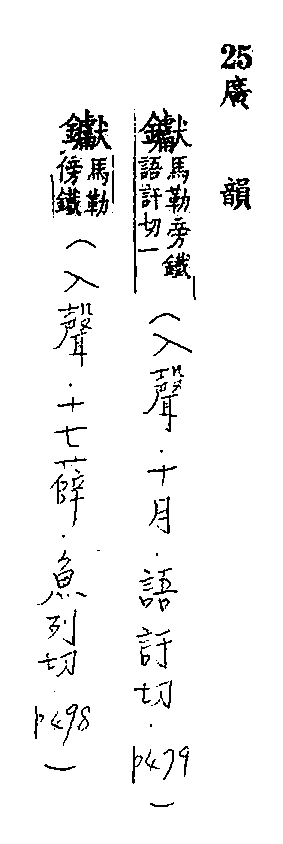 25廣韻
钀馬勒旁鐵語訐切一(入聲.十月.語訐切.p479)
钀馬勒傍鐵(入聲.十七薛.魚列切.p498)